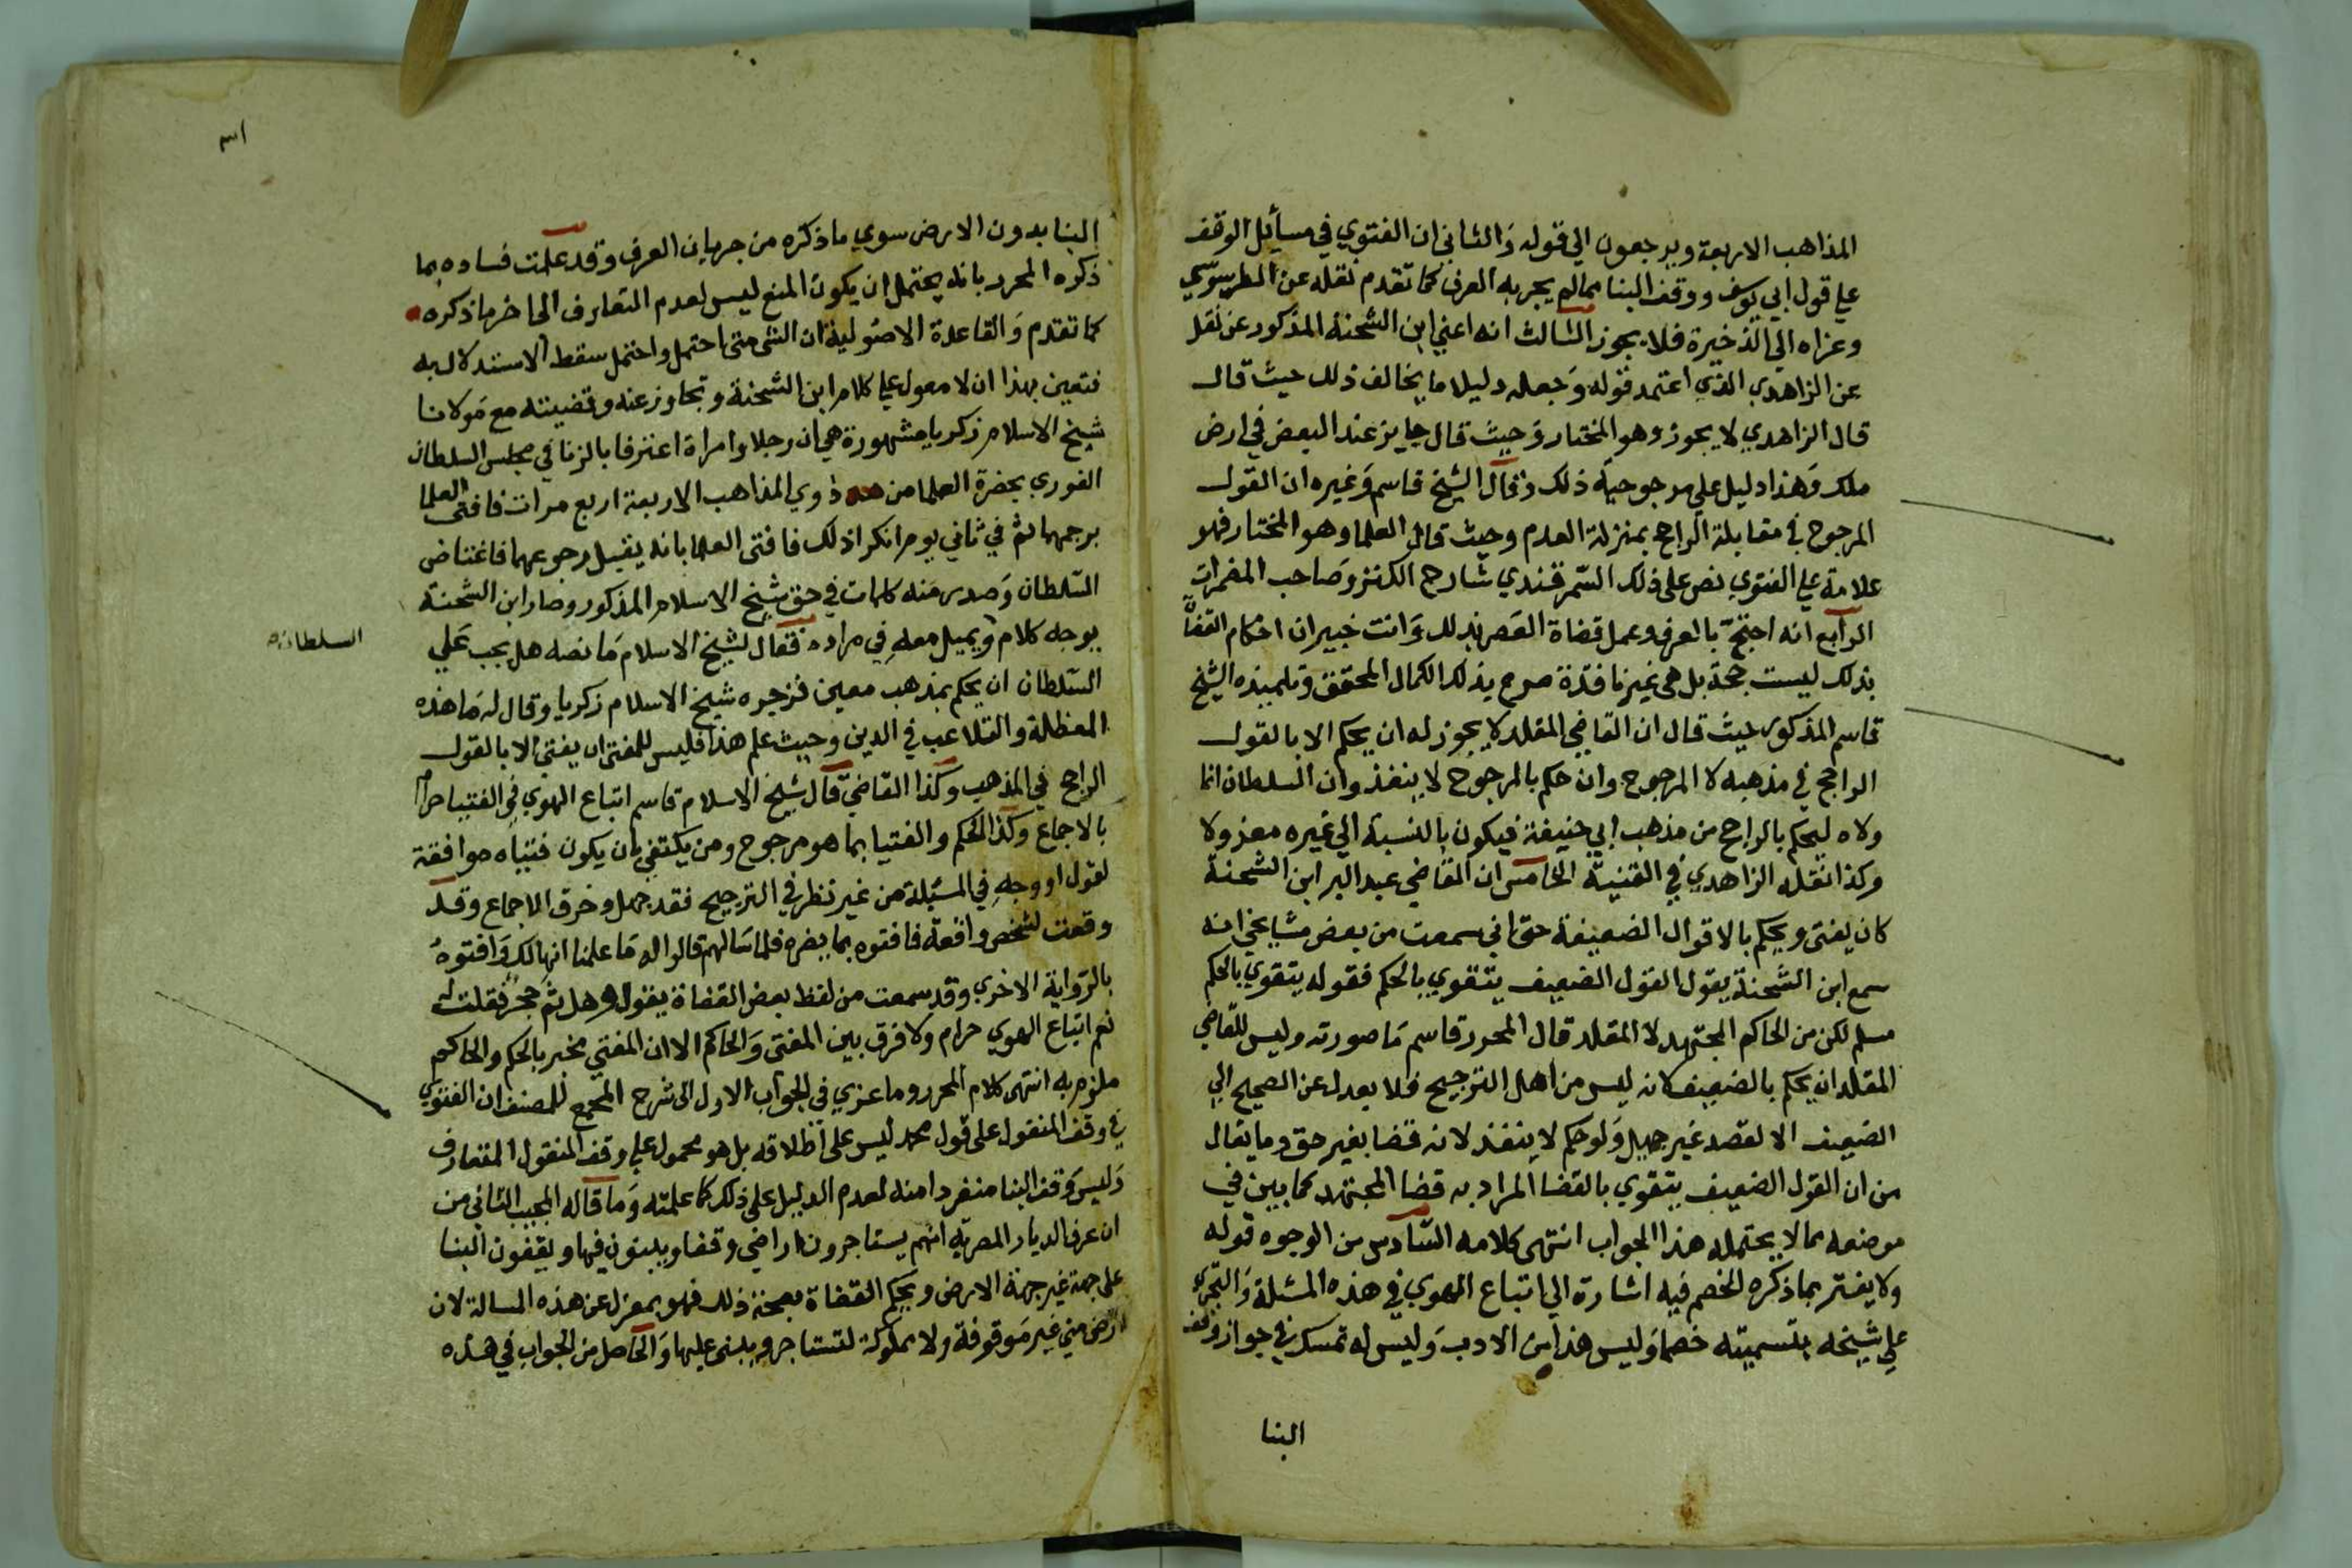 المذاهب الاربعة ويرجعون الي قوله والثاني ان الفتوي في مسايل الوقف
علي قول ابي يوسف ووقف البنا مما لم يجر به العرف كما تقدم نقله عن الطرسوسي
وعزاه الي الذخيرة فلا يجوز الثالث انه اعني ابن الشحنة المذكور عن نقل
عن الزاهدي الذي اعتمد قوله وجعله دليلا ما يخالف ذلك حيث قال
قال الزاهدي لا يجوز وهو المختار وحيث قال جايز عند البعض في ارض
ملك وهذا دليل علي مرجوحية ذلك وقال الشيخ قاسم وغيره ان القول
المرجوح في مقابلة الراجح بمنزلة العدم وحيث قال العلما وهو المختار فهو
علامة علي الفتوي نص على ذلك السمرقندي شارح الكنز وصاحب المضمرات
الرابع انه احتج بالعرف وعمل قضاة العصر بذلك وانت خبير ان احكام القضا
بذلك ليست بحجة بل هي غير نافذة صرح بذلك الكمال المحقق وتلميذه الشيخ
قاسم المذكور حيث قال ان القاضي المقلد لا يجوز له ان يحكم الا بالقول
الراجح في مذهبه لا المرجوح وان حكم بالمرجوح لا ينفذ وان السلطان انما
ولاه ليحكم بالراجح من مذهب ابي حنيفة فيكون بالنسبة الي غيره معزولا
وكذا نقله الزاهدي في القنية الخامس ان القاضي عبد البر ابن الشحنة
كان يفتى ويحكم بالاقوال الضعيفة حتى اني سمعت من بعض مشايخي انه
سمع ابن الشحنة يقول القول الضعيف يتقوي بالحكم فقوله يتقوي بالحكم
مسلم لكن من الحاكم المجتهد لا المقلد قال المحرر قاسم ما صورته وليس للقاضي
المقلد ان يحكم بالضعيف لانه ليس من اهل الترجيح فلا يعدل عن الصحيح الي
الضعيف الا لقصد غير جميل ولو حكم لا ينفذ لانه قضا بغير حق وما يقال
من ان القول الضعيف يتقوي بالقضا المراد به قضا المجتهد كما بين في
موضعه مما لا يحتمله هذا الجواب انتهى كلامه السادس من الوجوه قوله
ولا يغتر بما ذكره الخصم فيه اشارة الي اتباع الهوي في هذه المسئلة والتجري
علي شيخه بتسميته خصما وليس هذا من الادب وليس له تمسك في جواز وقف
البنا
اس
البنا بدون الارض سوي ما ذكره من جريان العرف وقد علمت فساده بما
ذكره المحرر بانه يحتمل ان يكون المنع ليس لعدم التعارف الى اخر ما ذكره
كما تقدم والقاعدة الاصولية ان الشي متى احتمل واحتمل سقط الاستدلال به
فتعين بهذا ان لا معول علي كلام ابن الشحنة وتجاوز عنه وقضيته مع مولانا
شيخ الاسلام زكريا مشهورة هي ان رجلا وامراة اعترفا بالزنا في مجلس السلطان
الغوري بحضرة العلما من ذوي المذاهب الاربعة اربع مرات فافتى العلما
برجمهما ثم في ثاني يوم انكرا ذلك فافتى العلما بانه يقبل رجوعهما فاغتاض
السلطان وصدر منه كلمات في حق شيخ الاسلام المذكور وصار ابن الشحنة
يوجه كلام ويميل معه في مراده فقال لشيخ الاسلام ما نصه هل يجب علي
السلطان
السلطان ان يحكم بمذهب معين فزجره شيخ الاسلام زكريا وقال له ما هذه
المغظلة والتلاعب في الدين وحيث علم هذا فليس للمفتى ان يفتي الا بالقول
الراجح في المذهب وكذا القاضي قال شيخ الاسلام قاسم اتباع الهوي في الفتيا حرام
بالاجماع وكذا الحكم والفتيا بما هو مرجوح ومن يكتفي بان يكون فتياه موافقة
لقول او وجه في المسئلة من غير نظر في الترجيح فقد جهل وخرق الاجماع وقد
وقعت لشخص واقعة فافتوه بما يضره فلما سالهم قالوا له ما علمنا انها لك وافتوه
بالرواية الاخري وقد سمعت من لفظ بعض القضاة يقول وهل ثم حجر فقلت له
نعم اتباع الهوي حرام ولا فرق بين المفتى والحاكم الا ان المفتي مخبر بالحكم والحاكم
ملزم به انتهى كلام المحرر وما عزي في الجواب الاول الى شرح المجمع للمصنف ان الفتوي
في وقف المنقول على قول محمد ليس على اطلاقه بل هو محمول علي وقف المنقول المتعارف
وليس وقف البنا منفردا منه لعدم الدليل على ذلك كما علمته وما قاله المجيب الثاني من
ان عرف الديار المصرية انهم يستاجرون اراضي وقفا ويبنون فيها ويقفون البنا
على جهة غير جهة الارض ويحكم القضاة بصحة ذلك فهو بمعزل عن هذه المسالة لان
ارض مني غير موقوفة ولا مملوكة لتستاجر ويبنى عليها والحاصل من الجواب في هذه